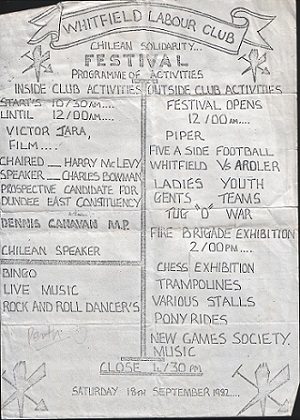 WHITFIELD LABOUR CLUB
CHILEAN SOLIDARITY...
FESTIVAL
PROGRAMME OF ACTIVITIES
INSIDE CLUB ACTIVITIES
START'S 10/30 AM....
UNTIL 12/00 AM....
VICTOR JARA,
FILM....
CHAIRED __ HARRY McLEVY
SPEAKER __ CHARLES BOWMAN
PROSPECTIVE CANDIDATE FOR
DUNDEE EAST CONSTITUENCY
DENNIS CANAVAN M.P.
CHILEAN SPEAKER
BINGO
LIVE MUSIC
ROCK AND ROLL DANCER'S
OUTSIDE CLUB ACTIVITIES
FESTIVAL OPENS
12/00 AM....
PIPER
FIVE A SIDE FOOTBALL
WHITFIELD Vs ARDLER
LADIES YOUTH
GENTS TEAMS
TUG "O" WAR
FIRE BRIGADE EXHIBITION
2/00 PM....
CHESS EXHIBITION
TRAMPOLINES
VARIOUS STALLS
PONY RIDES
NEW GAMES SOCIETY.
MUSIC
CLOSE 4/30 PM
SATURDAY 18TH SEPTEMBER 1982...